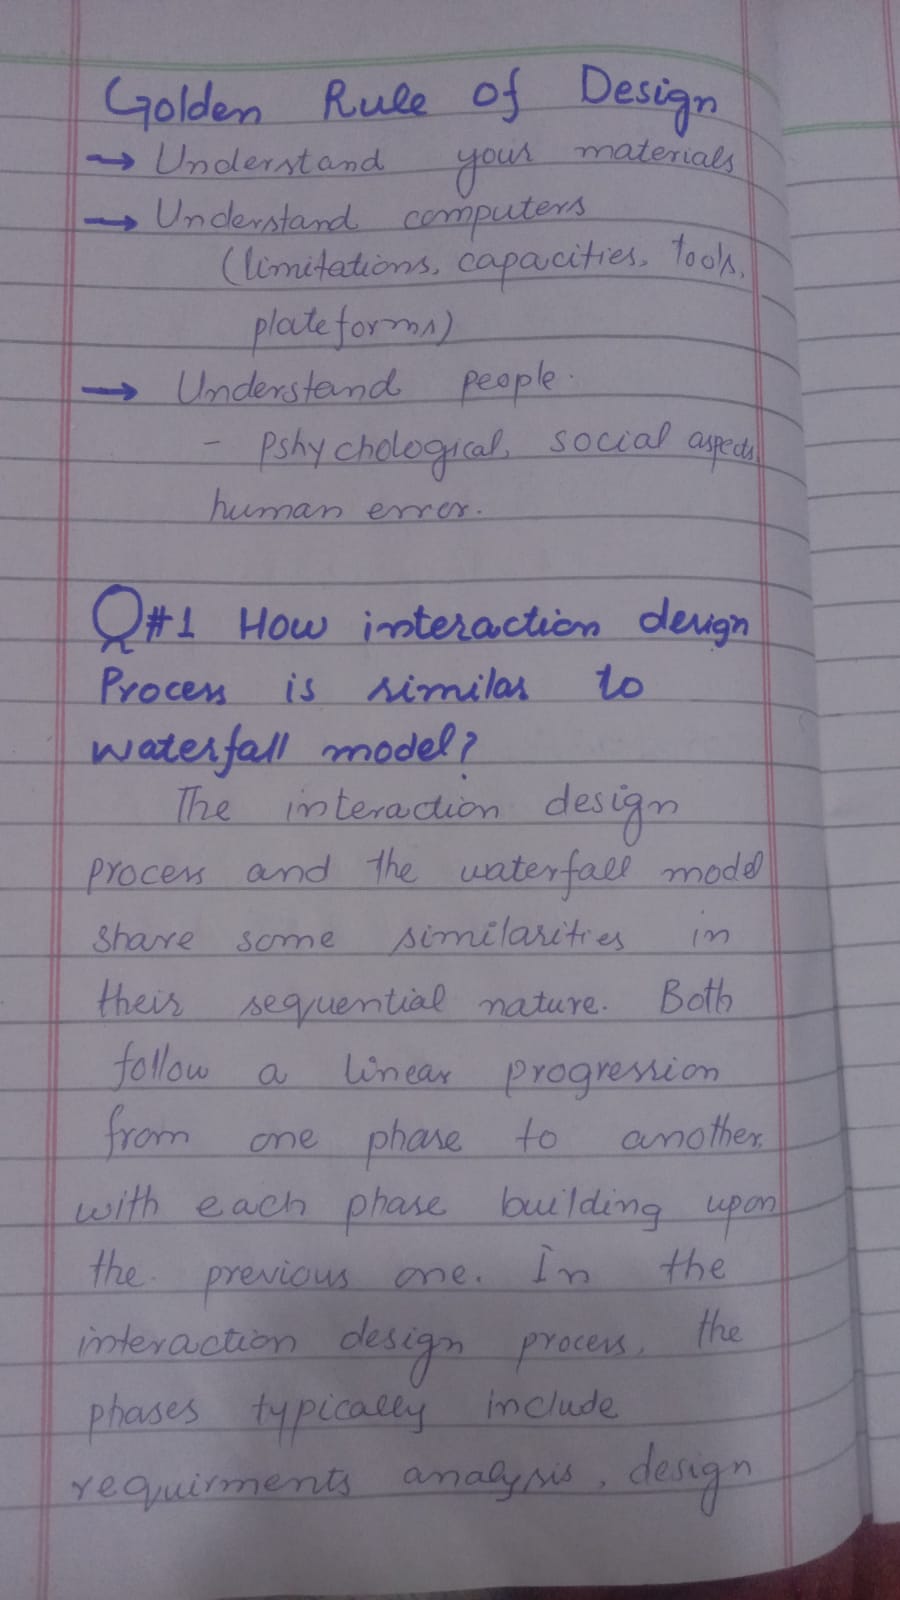 Golden Rule of Design
→ Understand your materials
→ Understand computers
(limitations, capacities, tools,
plateforms)
→ Understand people.
- Pshychological, social aspects,
human error.
Q#1 How interaction design
Process is similar to
waterfall model?
The interaction design
process and the waterfall model
share some similarities in
their sequential nature. Both
follow a linear progression
from one phase to another,
with each phase building upon
the previous one. In the
interaction design process, the
phases typically include
requirments analysis, design